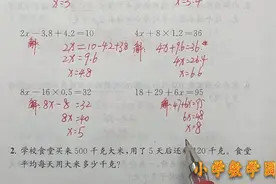 x=5
x=5.4
2x−3.8+4.2=10
4x+8×1.2=36
解: 2x=10-4.2+3.8
解: 4x+9.6=36
2x=9.6
4x=26.4
x=4.8
x=6.6
8x−16×0.5=32
18+29+6x=95
解: 8x-8=32
解: 47+6x=95
8x=40
6x=48
x=5
x=8
2. 学校食堂买来500千克大米,用了5天后还剩120千克。食堂
平均每天用大米多少千克?
小学数学园